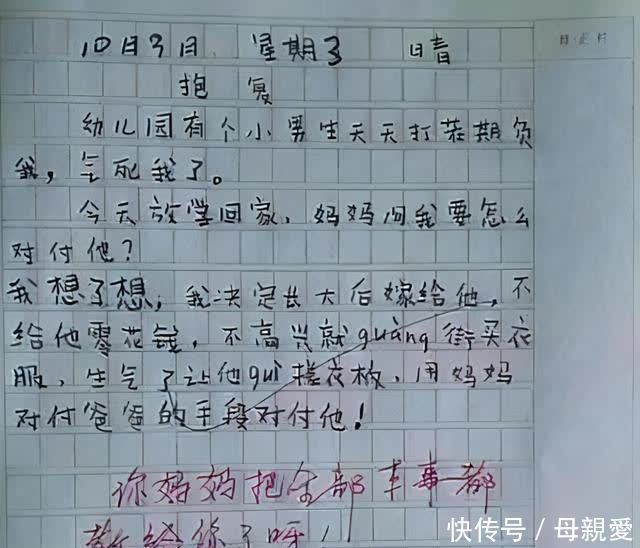 10月3日 星期3 日青
抱复
幼儿园有个小男生天天打茬期负
我，气死我了。
今天放学回家，妈妈问我要怎么
对付他？
我想了想，我决定长大后嫁给他，不
给他零花钱，不高兴就guàng街买衣
服，生气了让他guì搓衣板，用妈妈
对付爸爸的手段对付他！
你妈妈把全部本事都
教给你了呀！
快传号/母親愛